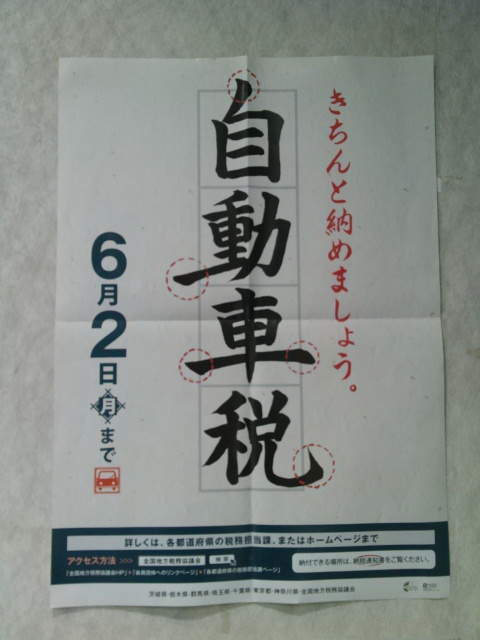 きちんと納めましょう。
自動車税
6月2日月まで
詳しくは、各都道府県の税務担当課、またはホームページまで
アクセス方法 >>> 全国地方税務協議会 検索
「全国地方税務協議会HP」>「会員団体へのリンクページ」>「各都道府県の税務担当課ページ」
納付できる場所は、納税通知書をご覧ください。
茨城県・栃木県・群馬県・埼玉県・千葉県・東京都・神奈川県・全国地方税務協議会